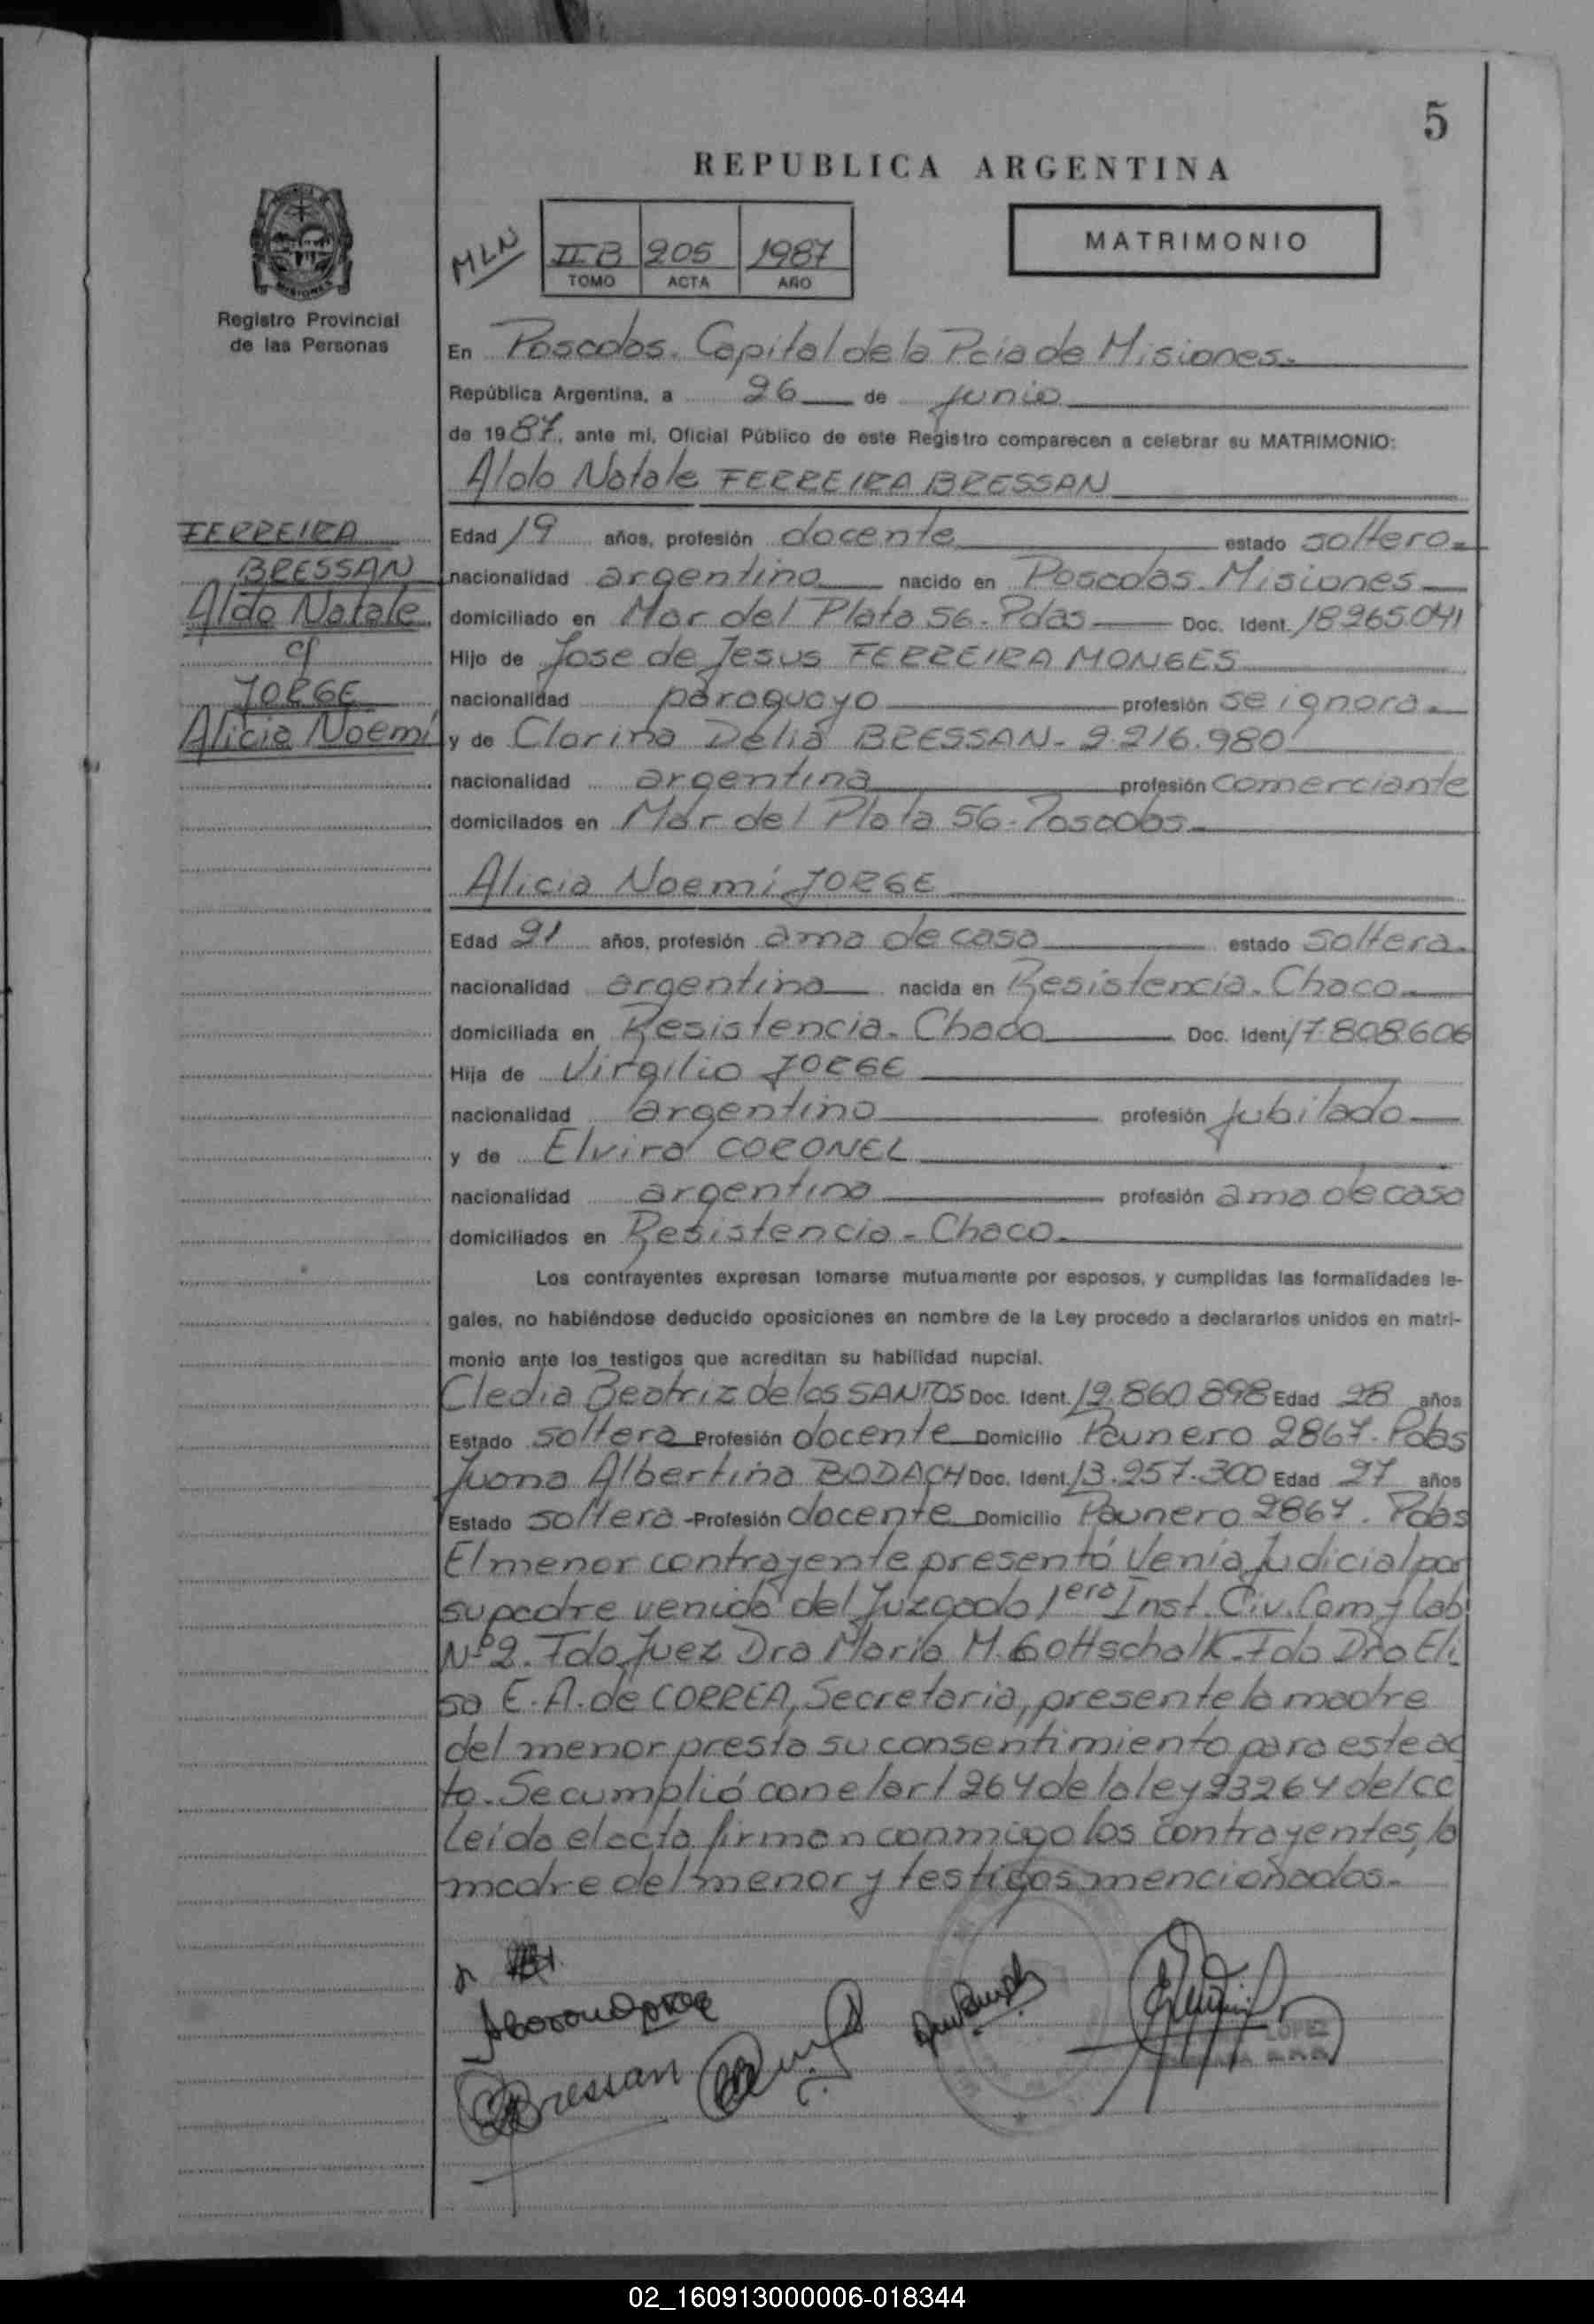 5
REPUBLICA ARGENTINA
MLN
II B 205 1987
TOMO ACTA AÑO
MATRIMONIO
MISIONES
Registro Provincial
de las Personas
En Posadas. Capital de la Pcia de Misiones.
República Argentina, a 26 de junio
de 1987, ante mí, Oficial Público de este Registro comparecen a celebrar su MATRIMONIO:
Aldo Natale FERREIRA BRESSAN
FERREIRA
BRESSAN
Aldo Natale
c/
JORGE
Alicia Noemí
Edad 19 años, profesión docente estado soltero.
nacionalidad argentina nacido en Posadas. Misiones
domiciliado en Mar del Plata 56. Pdas Doc. Ident. 18265.041
Hijo de Jose de Jesus FERREIRA MONGES
nacionalidad paraguayo profesión se ignora.
y de Clarina Delia BRESSAN - 2.216.980
nacionalidad argentina profesión comerciante
domicilados en Mar del Plata 56 - Posadas.
Alicia Noemí JORGE
Edad 21 años, profesión ama de casa estado soltera.
nacionalidad argentina nacida en Resistencia. Chaco
domiciliada en Resistencia. Chaco Doc. Ident 17808606
Hija de Virgilio JORGE
nacionalidad argentino profesión jubilado
y de Elvira CORONEL
nacionalidad argentina profesión ama de casa
domiciliados en Resistencia - Chaco.
Los contrayentes expresan tomarse mutuamente por esposos, y cumplidas las formalidades le-
gales, no habiéndose deducido oposiciones en nombre de la Ley procedo a declararlos unidos en matri-
monio ante los testigos que acreditan su habilidad nupcial.
Cledia Beatriz de los SANTOS Doc. Ident. 12.860 898 Edad 28 años
Estado soltera Profesión docente Domicilio Paunero 2867. Pdas
Juana Albertina BODACH Doc. Ident. 13.257.300 Edad 27 años
Estado soltera - Profesión docente Domicilio Paunero 2867. Pdas
El menor contrayente presentó Venia Judicial por
su padre venida del Juzgado 1era Inst. Civ. Com y lab
Nº 2. Fdo Juez Dra María M. Gottschalk. Fdo Dra Eli
sa E. A. de CORREA, Secretaria, presente la madre
del menor presta su consentimiento para este ac
to. Se cumplió con el art 264 de la ley 23264 del CC
leída el acta firman conmigo los contrayentes, la
madre del menor y testigos mencionados.-
Bressan
LOPEZ
02_160913000006-018344